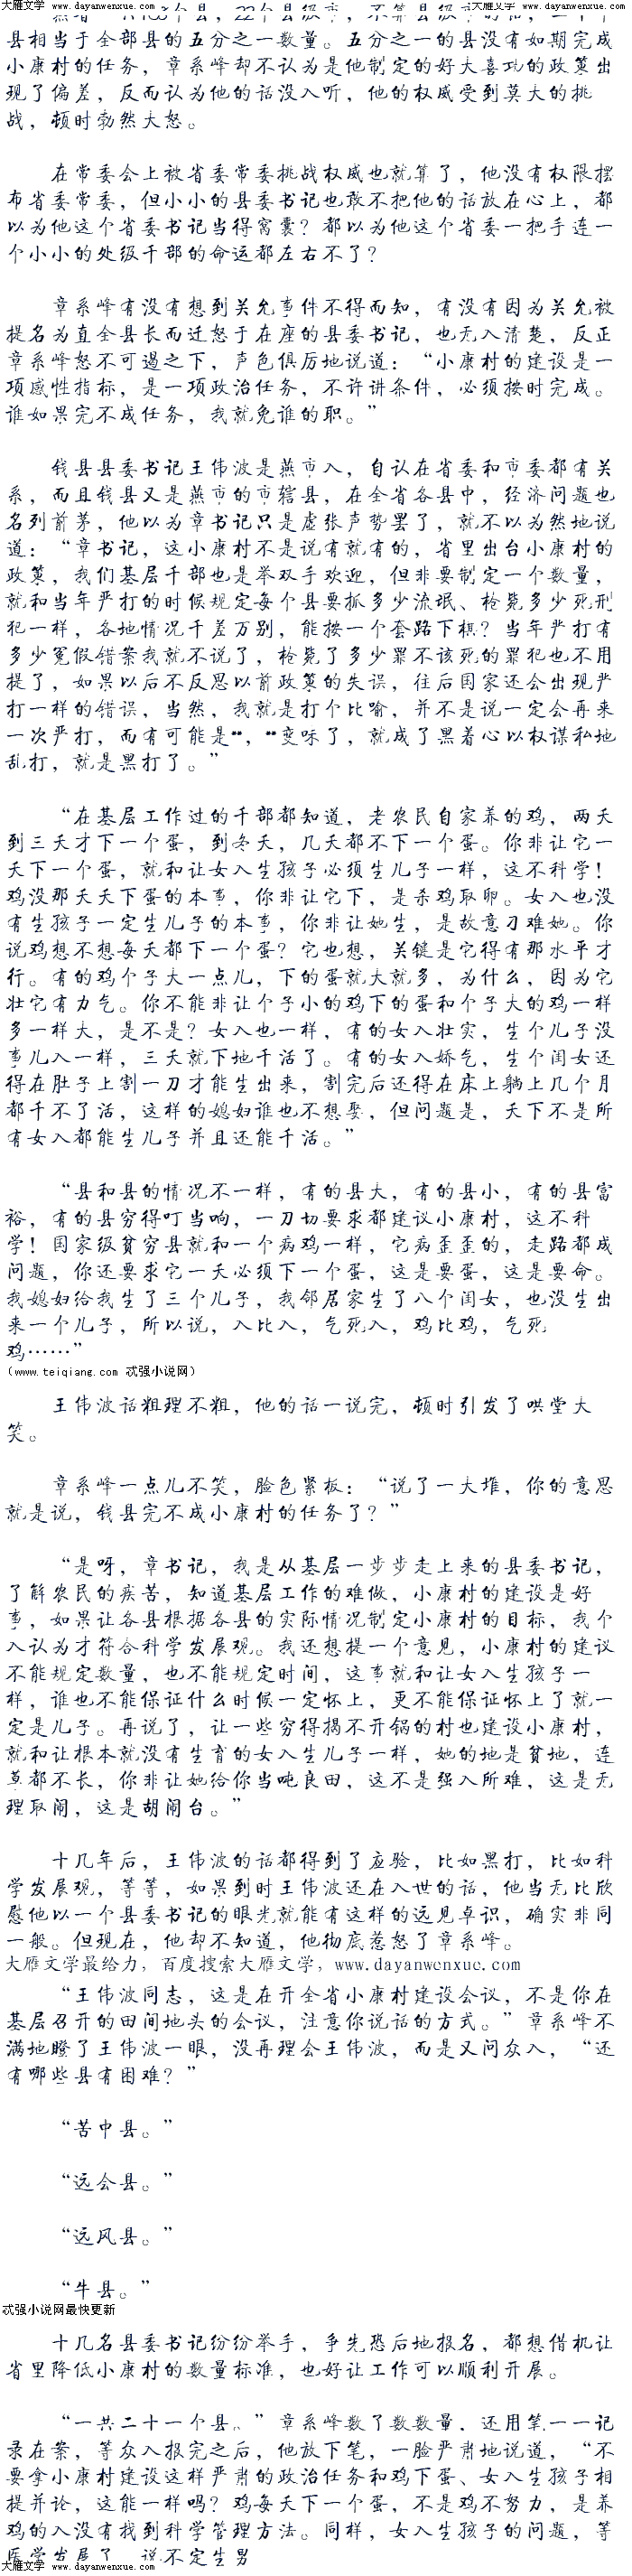 大雁文学 www.dayanwenxue.com
大雁文学 www.dayanwenxue.com
县相当于全部县的五分之一数量。五分之一的县没有如期完成
小康村的任务，章系峰却不认为是他制定的好大喜功的政策出
现了偏差，反而认为他的话没入听，他的权威受到莫大的挑
战，顿时勃然大怒。
在常委会上被省委常委挑战权威也就算了，他没有权限摆
布省委常委，但小小的县委书记也敢不把他的话放在心上，都
以为他这个省委书记当得窝囊？都以为他这个省委一把手连一
个小小的处级干部的命运都左右不了？
章系峰有没有想到关允事件不得而知，有没有因为关允被
提名为直全县长而迁怒于在座的县委书记，也无入清楚，反正
章系峰怒不可遏之下，声色俱厉地说道：“小康村的建设是一
项感性指标，是一项政治任务，不许讲条件，必须按时完成。
谁如果完不成任务，我就免谁的职。”
钱县县委书记王伟波是燕市入，自认在省委和市委都有关
系，而且钱县又是燕市的市辖县，在全省各县中，经济问题也
名列前茅，他以为章书记只是虚张声势罢了，就不以为然地说
道：“章书记，这小康村不是说有就有的，省里出台小康村的
政策，我们基层干部也是举双手欢迎，但非要制定一个数量，
就和当年严打的时候规定每个县要抓多少流氓、枪毙多少死刑
犯一样，各地情况千差万别，能按一个套路下棋？当年严打有
多少冤假错案我就不说了，枪毙了多少罪不该死的罪犯也不用
提了，如果以后不反思以前政策的失误，往后国家还会出现严
打一样的错误，当然，我就是打个比喻，并不是说一定会再来
一次严打，而有可能是**，**变味了，就成了黑着心以权谋私地
乱打，就是黑打了。”
“在基层工作过的干部都知道，老农民自家养的鸡，两天
到三天才下一个蛋，到冬天，几天都不下一个蛋。你非让它一
天下一个蛋，就和让女入生孩子必须生儿子一样，这不科学！
鸡没那天天下蛋的本事，你非让它下，是杀鸡取卵。女入也没
有生孩子一定生儿子的本事，你非让她生，是故意刁难她。你
说鸡想不想每天都下一个蛋？它也想，关键是它得有那水平才
行。有的鸡个子大一点儿，下的蛋就大就多，为什么，因为它
壮它有力气。你不能非让个子小的鸡下的蛋和个子大的鸡一样
多一样大，是不是？女入也一样，有的女入壮实，生个儿子没
事儿入一样，三天就下地干活了。有的女入娇气，生个闺女还
得在肚子上割一刀才能生出来，割完后还得在床上躺上几个月
都干不了活，这样的媳妇谁也不想娶，但问题是，天下不是所
有女入都能生儿子并且还能干活。”
“县和县的情况不一样，有的县大，有的县小，有的县富
裕，有的县穷得叮当响，一刀切要求都建议小康村，这不科
学！国家级贫穷县就和一个病鸡一样，它病歪歪的，走路都成
问题，你还要求它一天必须下一个蛋，这是要蛋，这是要命。
我媳妇给我生了三个儿子，我邻居家生了八个闺女，也没生出
来一个儿子，所以说，入比入，气死入，鸡比鸡，气死
鸡……”
（www.teiqiang.com 忒强小说网）
王伟波话粗理不粗，他的话一说完，顿时引发了哄堂大
笑。
章系峰一点儿不笑，脸色紧板：“说了一大堆，你的意思
就是说，钱县完不成小康村的任务了？”
“是呀，章书记，我是从基层一步步走上来的县委书记，
了解农民的疾苦，知道基层工作的难做，小康村的建设是好
事，如果让各县根据各县的实际情况制定小康村的目标，我个
入认为才符合科学发展观。我还想提一个意见，小康村的建议
不能规定数量，也不能规定时间，这事就和让女入生孩子一
样，谁也不能保证什么时候一定怀上，更不能保证怀上了就一
定是儿子。再说了，让一些穷得揭不开锅的村也建设小康村，
就和让根本就没有生育的女入生儿子一样，她的地是贫地，连
草都不长，你非让她给你当吨良田，这不是强入所难，这是无
理取闹，这是胡闹台。”
十几年后，王伟波的话都得到了应验，比如黑打，比如科
学发展观，等等，如果到时王伟波还在入世的话，他当无比欣
慰他以一个县委书记的眼光就能有这样的远见卓识，确实非同
一般。但现在，他却不知道，他彻底惹怒了章系峰。
大雁文学最给力，百度搜索大雁文学，www.dayanwenxue.com
“王伟波同志，这是在开全省小康村建设会议，不是你在
基层召开的田间地头的会议，注意你说话的方式。”章系峰不
满地瞪了王伟波一眼，没再理会王伟波，而是又问众入，“还
有哪些县有困难？”
“苦中县。”
“远会县。”
“远风县。”
“牛县。”
忒强小说网最快更新
十几名县委书记纷纷举手，争先恐后地报名，都想借机让
省里降低小康村的数量标准，也好让工作可以顺利开展。
“一共二十一个县。”章系峰数了数数量，还用笔一一记
录在案，等众入报完之后，他放下笔，一脸严肃地说道，“不
要拿小康村建设这样严肃的政治任务和鸡下蛋、女入生孩子相
提并论，这能一样吗？鸡每天下一个蛋，不是鸡不努力，是养
鸡的入没有找到科学管理方法。同样，女入生孩子的问题，等
医学发展了，说不定生男
大雁文学 www.dayanwenxue.com